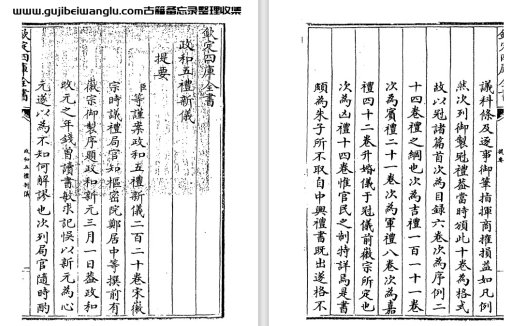 www.gujibeiwanglu.com古籍备忘录整理收集
欽定四庫全書
政和五禮新儀
提要
臣等謹案政和五禮新儀二百二十卷宋徽
宗時議禮局官知樞密院鄭居中等撰前有
徽宗御製序題政和新元三月一日蓋政和
改元之年錢曾讀書敏求記悞以新元為心
元遂以為不知何解謬也次列局官隨時酌
欽定四庫全書
政和五禮新儀
欽定四庫全書
提要
議科條及逐事御筆指揮商推損益如凡例
然次列御製冠禮蓋當時頒此十卷為格式
故以冠諸篇首次為目録六卷次為序例二
十四卷禮之綱也次為吉禮一百一十一卷
次為賓禮二十一卷次為軍禮八卷次為嘉
禮四十二卷升婚儀于冠儀前徽宗所定也
次為凶禮十四卷惟官民之制特詳焉是書
頗為朱子所不取自中興禮書既出遂格不